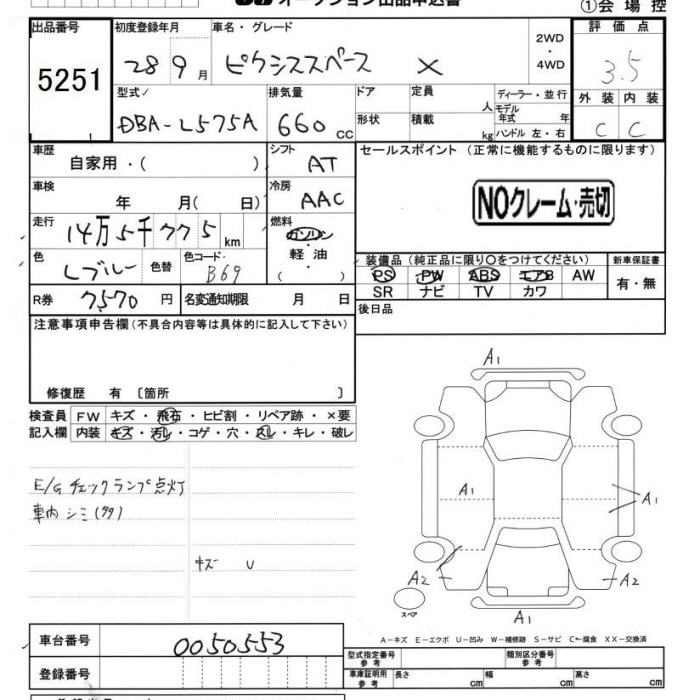 オークション出品申込書 ①会場控
出品番号 初度登録年月 車名・グレード 2WD 評価点
5251 28 9月 ピクシススペース X ・ 3.5
4WD
型式 排気量 ドア 定員 人 ディーラー・並行 外装 内装
DBA-L575A 660 cc 形状 積載 kg モデル年式 年 C C
ハンドル 左・右
車歴 シフト セールスポイント (正常に機能するものに限ります)
自家用・( ) AT
車検 冷房
年 月( 日) AAC NOクレーム・売切
走行 燃料
14万5千775km ガソリン
色 色コード 軽油 装備品(純正品に限り○をつけてください) 新車保証書
Lブルー 色替 B69 ( ) PS PW ABS エアB AW 有・無
R券 7570円 名変通知期限 月 日 SR ナビ TV カワ
注意事項申告欄(不具合内容等は具体的に記入して下さい) 後日品
修復歴 有 〔箇所 〕
検査員 FW キズ・飛石・ヒビ割・リペア跡・×要
記入欄 内装 キズ・汚レ・コゲ・穴・スレ・キレ・破レ
E/G チェックランプ点灯
車内 シミ
キズ U
A1
A1 A1
A2 A2
スペア A1
A-キズ E-エクボ U-凹み W-補修跡 S-サビ C-腐食 XX-交換済
車台番号 0050553
型式指定番号 参考 類別区分番号 参考
登録番号 車庫証明用 参考 長さ cm 幅 cm 高さ cm